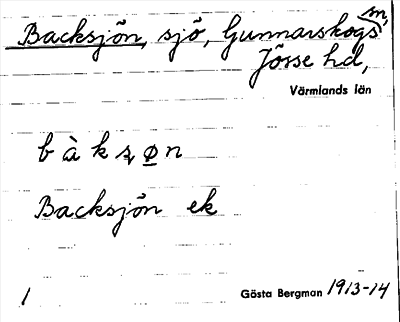 Backsjön, sjö, Gunnarskogs sn,
Jösse hd,
Värmlands län
b à k s̨ ø n
Backsjön ek
1 Gösta Bergman 1913-14